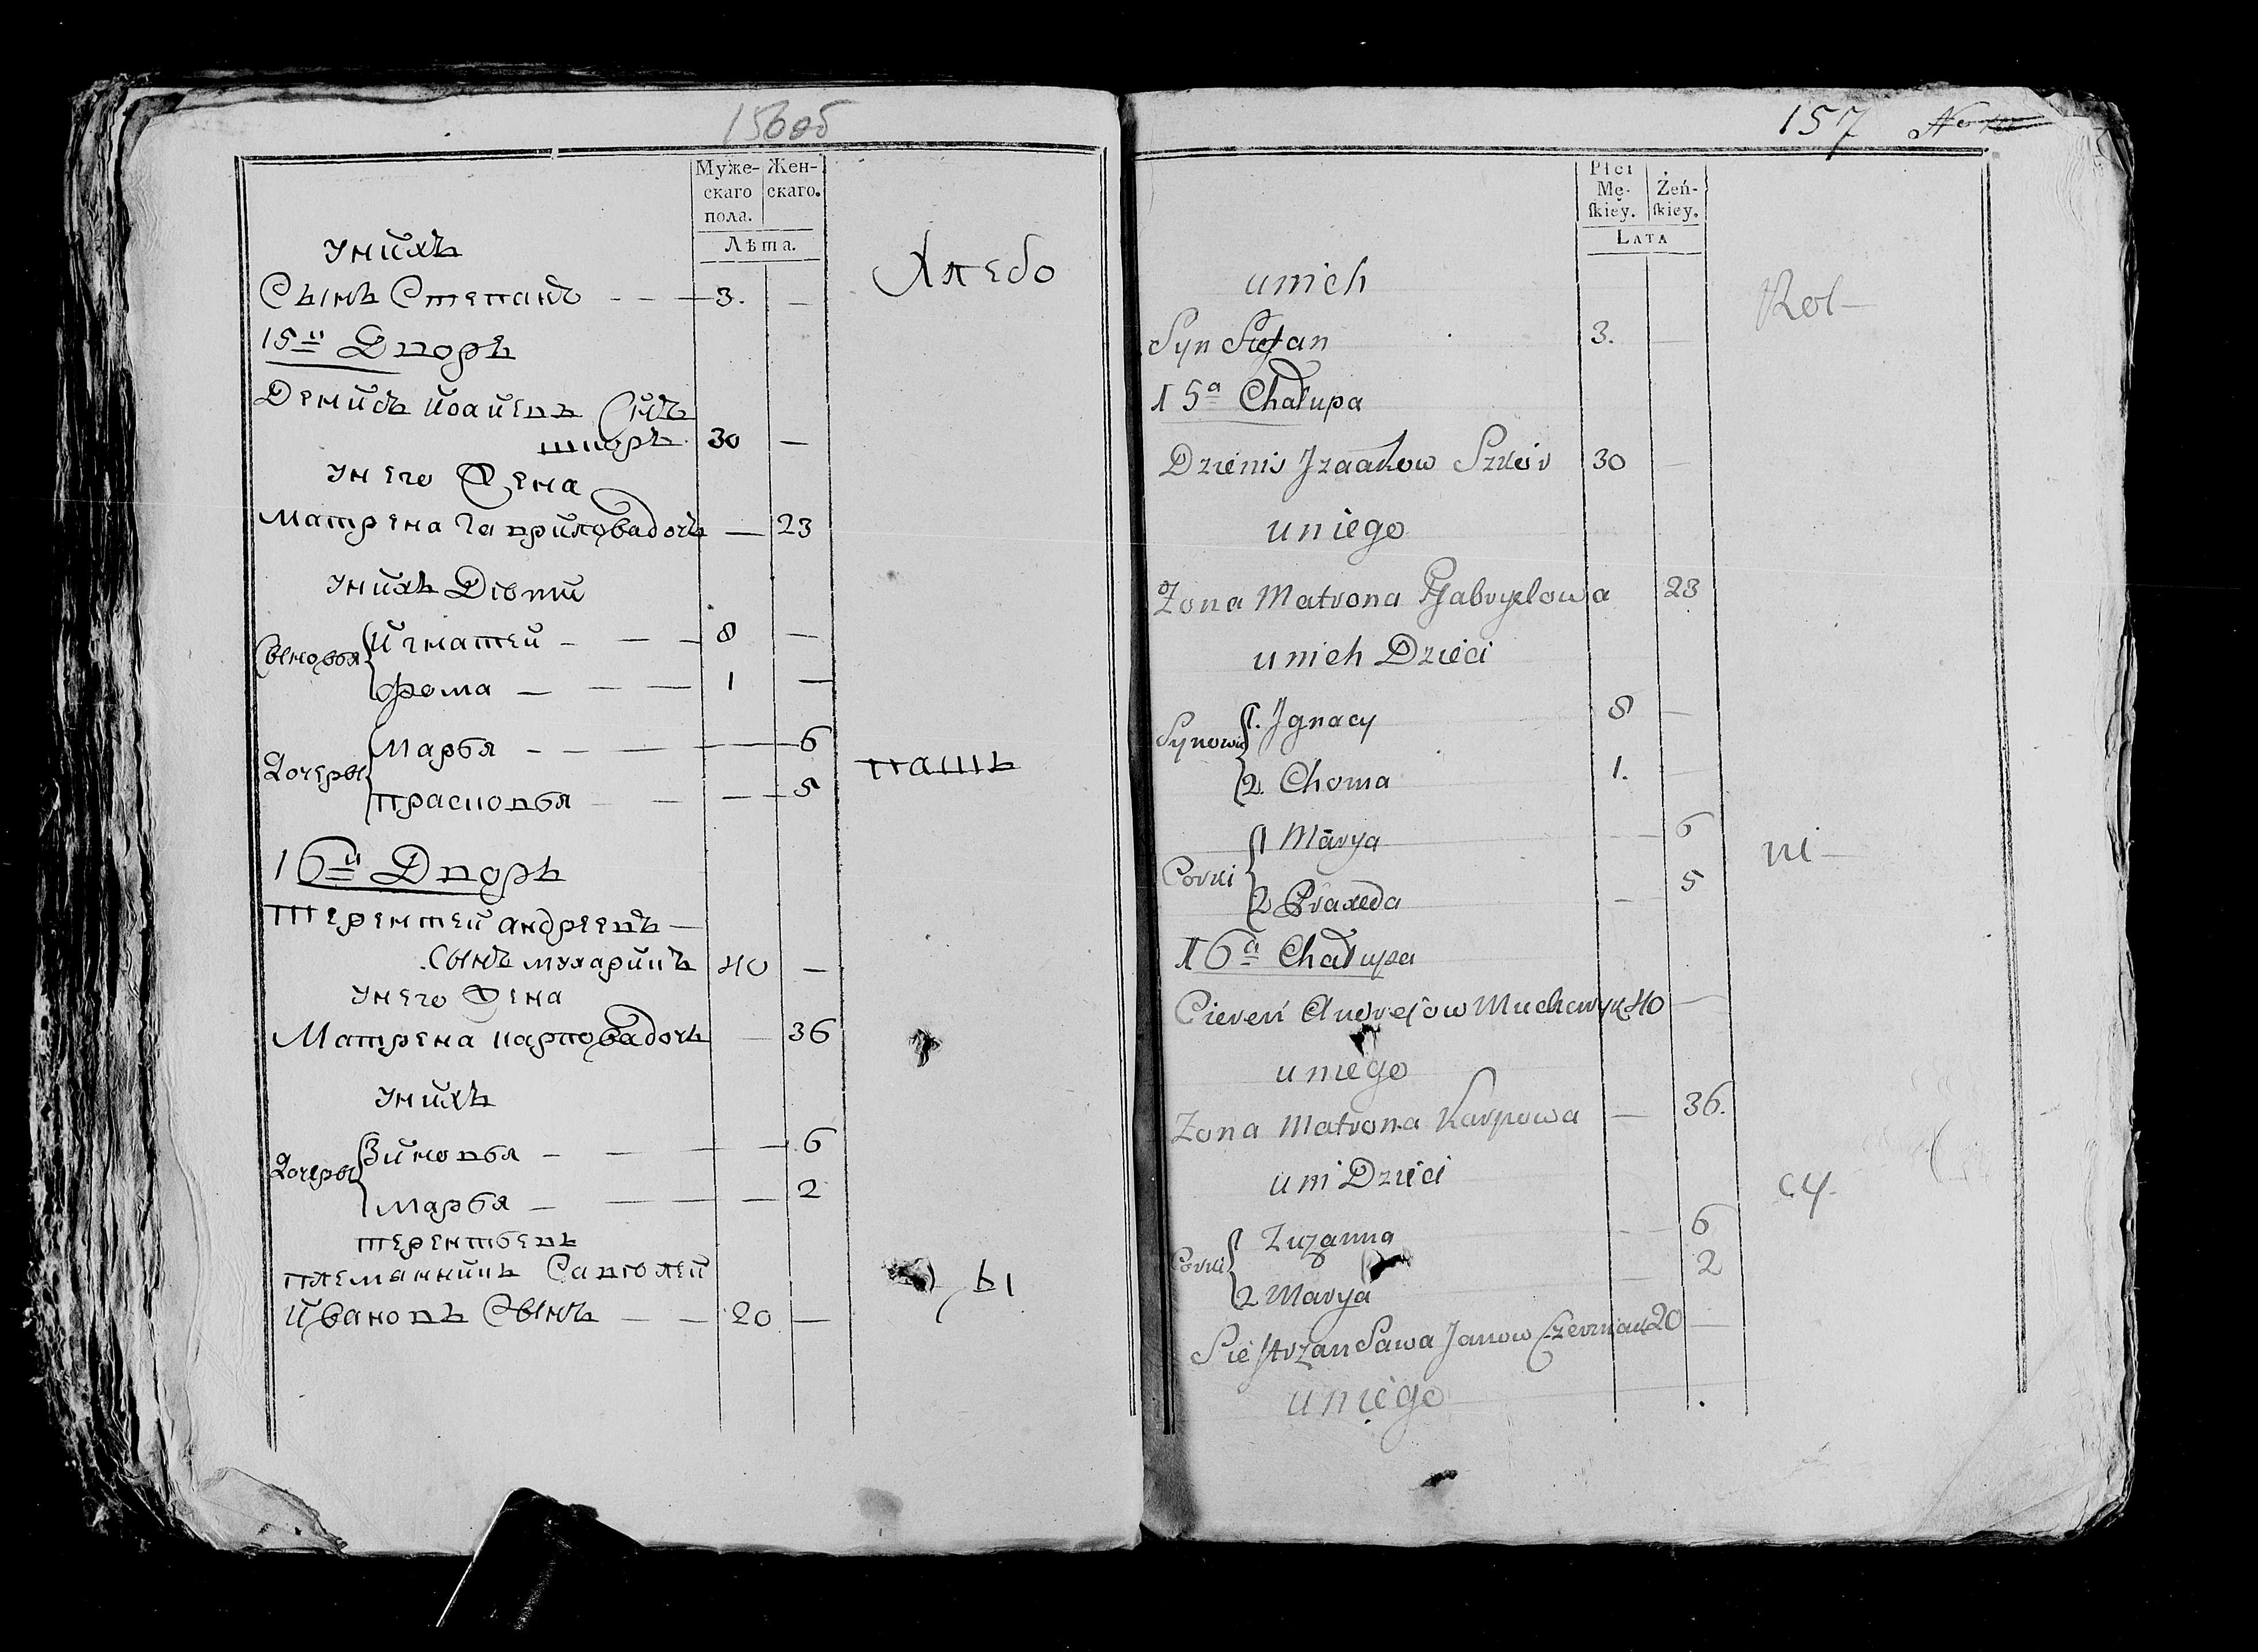 156об
Муже-
скаго
пола.
Жен-
скаго.
Лѣта.
унихъ
Хлебо
Сынъ Степанъ 3. —
15й Дворъ
Денисъ
Снъ
30 —
унего Жена
Матрена Гаврилова дочь — 23
унихъ Дѣти
Сыновья
Игнатей — 8 —
Фома — 1 —
Дочеры
Марья — 6
пашъ
Прасковья — 5
16й Дворъ
Терентей Андреевъ —
Сынъ мухарикъ 40 —
унего Жена
Матрена карпова дочь — 36
унихъ
Дочеры
Зиновья — 6
марья — 2
терентьевъ
племанникъ
Ивановъ Сынъ — 20 —
цы
157
Płci
Mę-
ſkiey.
Żeń-
ſkiey.
LATA
unich
Rol-
Syn Stefan 3. —
15a Chałupa
Dzienis Jzaakow 30 —
uniego
Zona Matrona Gabryelowa 23
unich Dzieci
Synowie
1. Jgnacy 8 —
2. Choma 1. —
Corki
1 Marya — 6
ni-
2 Praxeda — 5
16a Chałupa
Cieren Andrejow 40 —
uniego
Zona Matrona Karpowa — 36.
uni Dzieci
cy.
Corki
1 Zuzanna — 6
2 Marya — 2
Siestrzan Sawa Janow 20 —
uniego